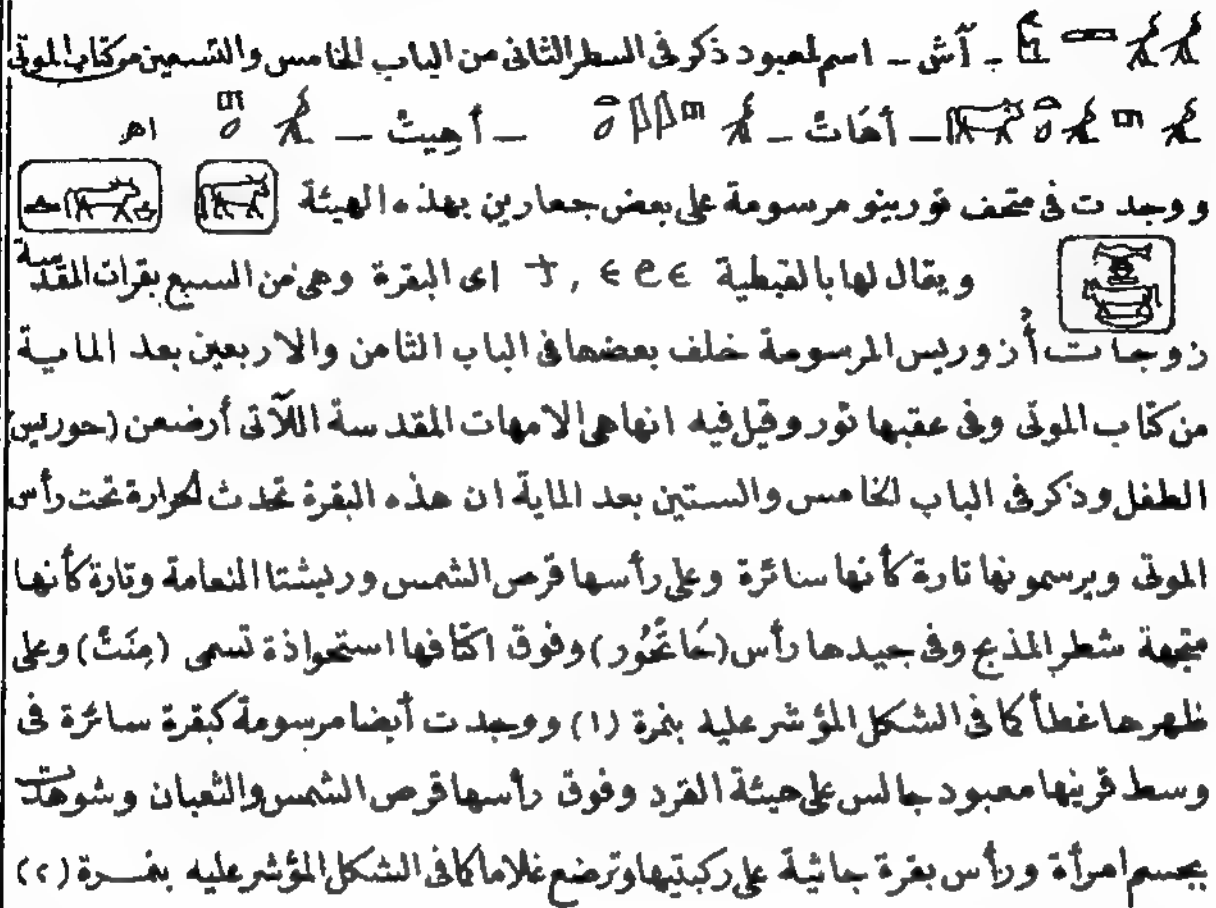 ـ آش ـ اسم لمعبود ذكر فى السطر الثانى من الباب الخامس والتسعين من كتاب الموتى
ـ أهَاتْ ـ ـ أهِيتْ ـ اهـ
ووجدت فى متحف تورينو مرسومة على بعض جعارين بهذه الهيئة
ويقال لها بالقبطية ϯ , ⲉϩⲉ اى البقرة وهى من السبع بقرات المقدسة
زوجات أُزوريس المرسومة خلف بعضها فى الباب الثامن والاربعين بعد الماية
من كتاب الموتى وفى عقبها ثور وقيل فيه انها هى الامهات المقدسة اللآتى أرضعن (حوريس)
الطفل وذكر فى الباب الخامس والستين بعد الماية ان هذه البقرة تحدث لحرارة تحت رأس
الموتى ويرسمونها تارة كأنها سائرة وعلى رأسها قرص الشمس وريشتا النعامة وتارة كأنها
متجهة شطر المذبح وفى جيدها رأس (حَاتْحُور) وفوق اكتافها استحواذة تسمى (مِنَتْ) وعلى
ظهرها غطأ كما فى الشكل المؤشر عليه بنمرة (١) ووجدت أيضا مرسومة كبقرة سائرة فى
وسط قرنيها معبود جالس على هيئة القرد وفوق رأسها قرص الشمس والثعبان وشوهدت
بجسم امرأة ورأس بقرة جاثية على ركبتيها وترضع غلاما كما فى الشكل المؤشر عليه بنمــرة (٢)